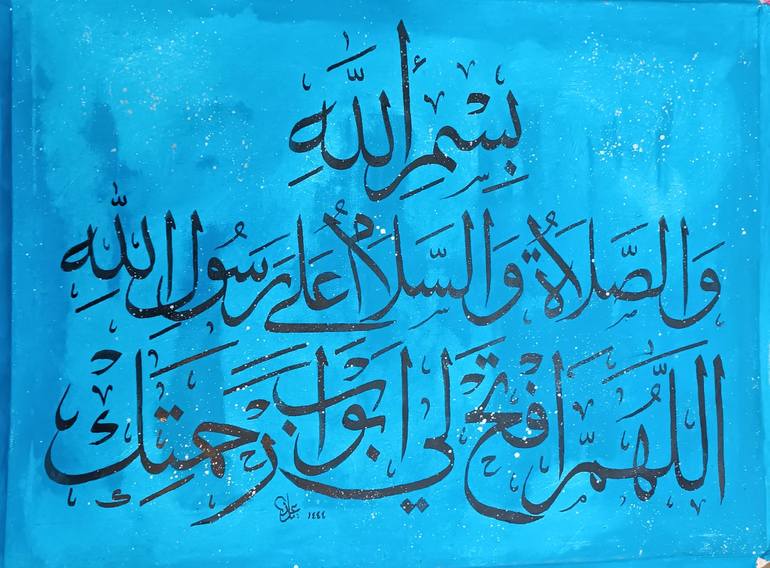 بِسْمِ اللَّهِ
وَالصَّلَاةُ وَالسَّلَامُ عَلَى رَسُولِ اللَّهِ
اللَّهُمَّ افْتَحْ لِي أَبْوَابَ رَحْمَتِكَ
١٤٤٤